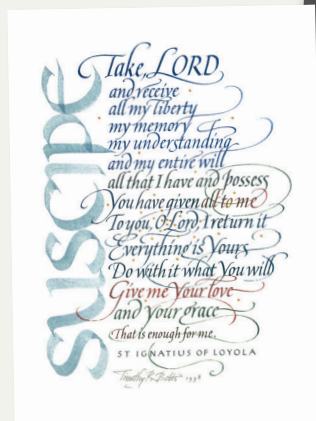 suscipe
Take, LORD,
and receive
all my liberty
my memory
my understanding
and my entire will
all that I have and possess
You have given all to me
To you, O Lord, I return it
Everything is Yours
Do with it what You will
Give me Your love
and Your grace
That is enough for me.
ST IGNATIUS OF LOYOLA
Timothy R. Botts 1998